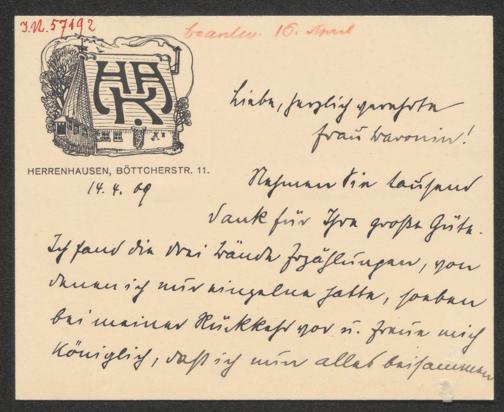 I.N. 57192
beantw. 16. April
HAK
HERRENHAUSEN, BÖTTCHERSTR. 11.
14.4.09
Liebe, herzlich verehrte
Frau Baronin!
Nehmen Sie tausend
Dank für Ihre große Güte.
Ich fand die drei Bände Erzählungen, von
denen ich nur einzelne hatte, soeben
bei meiner Rückkehr vor u. freue mich
königlich, daß ich nun alles beisammen